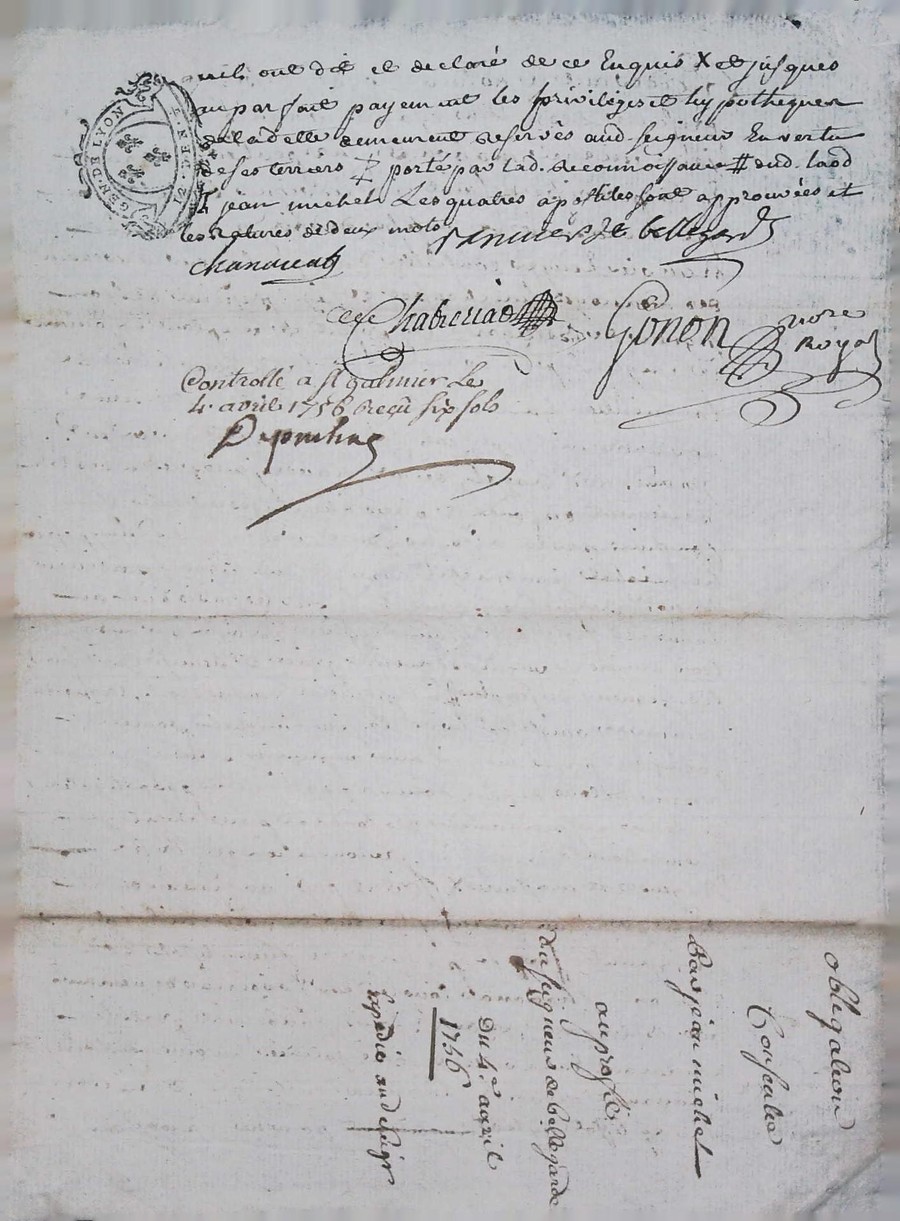 GEN. DE LYON
12. DEN. F.
nils ont dit et declaré de ce Enquis X et jusques
au parfait payement les privileges et hypotheques
de la delle demeurent reservés aud. seigneur En vertu
de ses terriers porté par lad. Reconnoissance # dud. laod
jean michel Les quatres apostiles sont approuvées et
les ratures de deux mots
de bellegarde
Chabreriad
Gonon nore
Royal
Controllé a st galmier Le
4. avril 1756 Reçu six sols
obligation
Consentie
Par jean michel
au proffit
du seigneur de bellegarde
Du 4.e avril
1756
Expedié aud seigr